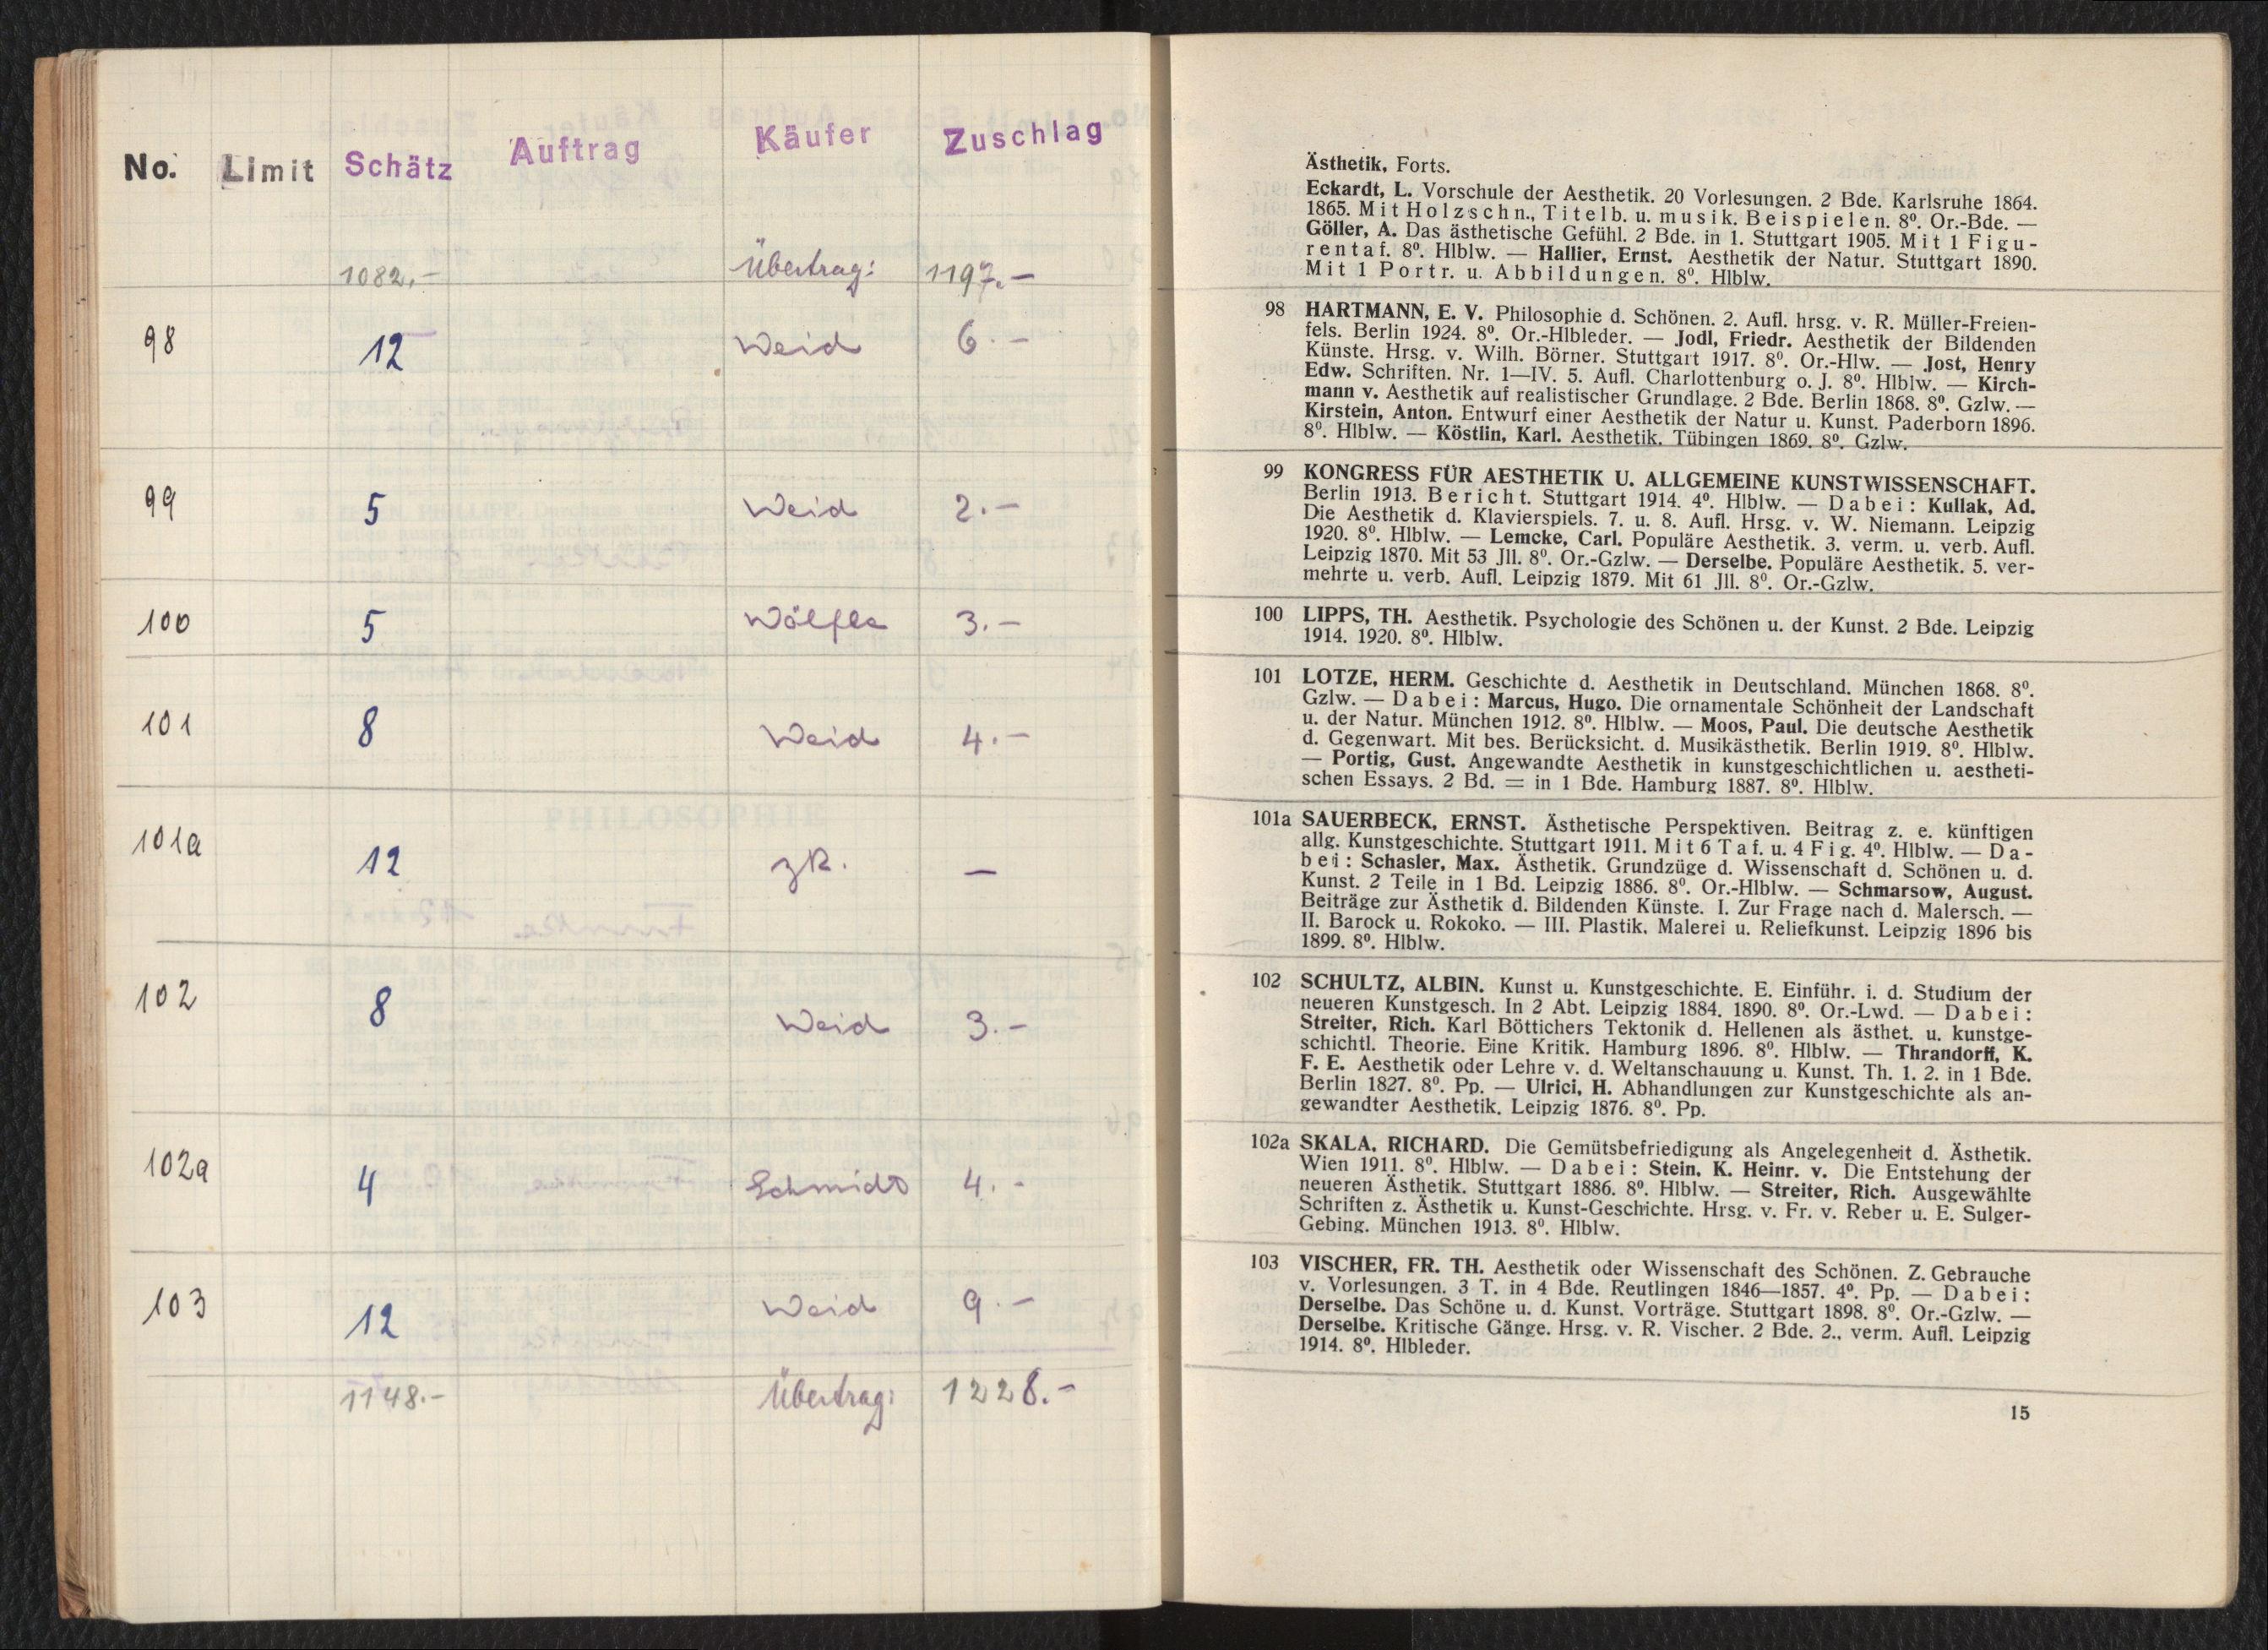 No. Limit Schätz Auftrag Käufer Zuschlag
1082.- Übertrag: 1197.-
98 12 Weid 6.-
99 5 Weid 2.-
100 5 Wölfle 3.-
101 8 Weid 4.-
101a 12 zR. -
102 8 Weid 3.-
102a 4 Schmidt 4.-
103 12 Weid 9.-
1148.- Übertrag: 1228.-
Ästhetik, Forts.
Eckardt, L. Vorschule der Aesthetik. 20 Vorlesungen. 2 Bde. Karlsruhe 1864.
1865. Mit Holzschn., Titelb. u. musik. Beispielen. 8⁰. Or.-Bde. —
Göller, A. Das ästhetische Gefühl. 2 Bde. in 1. Stuttgart 1905. Mit 1 Figu-
rentaf. 8⁰. Hlblw. — Hallier, Ernst. Aesthetik der Natur. Stuttgart 1890.
Mit 1 Portr. u. Abbildungen. 8⁰. Hlblw.
98 HARTMANN, E. V. Philosophie d. Schönen. 2. Aufl. hrsg. v. R. Müller-Freien-
fels. Berlin 1924. 8⁰. Or.-Hlbleder. — Jodl, Friedr. Aesthetik der Bildenden
Künste. Hrsg. v. Wilh. Börner. Stuttgart 1917. 8⁰. Or.-Hlw. — Jost, Henry
Edw. Schriften. Nr. 1—IV. 5. Aufl. Charlottenburg o. J. 8⁰. Hlblw. — Kirch-
mann v. Aesthetik auf realistischer Grundlage. 2 Bde. Berlin 1868. 8⁰. Gzlw. —
Kirstein, Anton. Entwurf einer Aesthetik der Natur u. Kunst. Paderborn 1896.
8⁰. Hlblw. — Köstlin, Karl. Aesthetik. Tübingen 1869. 8⁰. Gzlw.
99 KONGRESS FÜR AESTHETIK U. ALLGEMEINE KUNSTWISSENSCHAFT.
Berlin 1913. Bericht. Stuttgart 1914. 4⁰. Hlblw. — Dabei: Kullak, Ad.
Die Aesthetik d. Klavierspiels. 7. u. 8. Aufl. Hrsg. v. W. Niemann. Leipzig
1920. 8⁰. Hlblw. — Lemcke, Carl. Populäre Aesthetik. 3. verm. u. verb. Aufl.
Leipzig 1870. Mit 53 Jll. 8⁰. Or.-Gzlw. — Derselbe. Populäre Aesthetik. 5. ver-
mehrte u. verb. Aufl. Leipzig 1879. Mit 61 Jll. 8⁰. Or.-Gzlw.
100 LIPPS, TH. Aesthetik. Psychologie des Schönen u. der Kunst. 2 Bde. Leipzig
1914. 1920. 8⁰. Hlblw.
101 LOTZE, HERM. Geschichte d. Aesthetik in Deutschland. München 1868. 8⁰.
Gzlw. — Dabei: Marcus, Hugo. Die ornamentale Schönheit der Landschaft
u. der Natur. München 1912. 8⁰. Hlblw. — Moos, Paul. Die deutsche Aesthetik
d. Gegenwart. Mit bes. Berücksicht. d. Musikästhetik. Berlin 1919. 8⁰. Hlblw.
— Portig, Gust. Angewandte Aesthetik in kunstgeschichtlichen u. aestheti-
schen Essays. 2 Bd. = in 1 Bde. Hamburg 1887. 8⁰. Hlblw.
101a SAUERBECK, ERNST. Ästhetische Perspektiven. Beitrag z. e. künftigen
allg. Kunstgeschichte. Stuttgart 1911. Mit 6 Taf. u. 4 Fig. 4⁰. Hlblw. — Da-
bei: Schasler, Max. Ästhetik. Grundzüge d. Wissenschaft d. Schönen u. d.
Kunst. 2 Teile in 1 Bd. Leipzig 1886. 8⁰. Or.-Hlblw. — Schmarsow, August.
Beiträge zur Ästhetik d. Bildenden Künste. I. Zur Frage nach d. Malersch. —
II. Barock u. Rokoko. — III. Plastik, Malerei u. Reliefkunst. Leipzig 1896 bis
1899. 8⁰. Hlblw.
102 SCHULTZ, ALBIN. Kunst u. Kunstgeschichte. E. Einführ. i. d. Studium der
neueren Kunstgesch. In 2 Abt. Leipzig 1884. 1890. 8⁰. Or.-Lwd. — Dabei:
Streiter, Rich. Karl Böttichers Tektonik d. Hellenen als ästhet. u. kunstge-
schichtl. Theorie. Eine Kritik. Hamburg 1896. 8⁰. Hlblw. — Thrandorff, K.
F. E. Aesthetik oder Lehre v. d. Weltanschauung u. Kunst. Th. 1. 2. in 1 Bde.
Berlin 1827. 8⁰. Pp. — Ulrici, H. Abhandlungen zur Kunstgeschichte als an-
gewandter Aesthetik. Leipzig 1876. 8⁰. Pp.
102a SKALA, RICHARD. Die Gemütsbefriedigung als Angelegenheit d. Ästhetik.
Wien 1911. 8⁰. Hlblw. — Dabei: Stein, K. Heinr. v. Die Entstehung der
neueren Ästhetik. Stuttgart 1886. 8⁰. Hlblw. — Streiter, Rich. Ausgewählte
Schriften z. Ästhetik u. Kunst-Geschichte. Hrsg. v. Fr. v. Reber u. E. Sulger-
Gebing. München 1913. 8⁰. Hlblw.
103 VISCHER, FR. TH. Aesthetik oder Wissenschaft des Schönen. Z. Gebrauche
v. Vorlesungen. 3 T. in 4 Bde. Reutlingen 1846—1857. 4⁰. Pp. — Dabei:
Derselbe. Das Schöne u. d. Kunst. Vorträge. Stuttgart 1898. 8⁰. Or.-Gzlw. —
Derselbe. Kritische Gänge. Hrsg. v. R. Vischer. 2 Bde. 2., verm. Aufl. Leipzig
1914. 8⁰. Hlbleder.
15